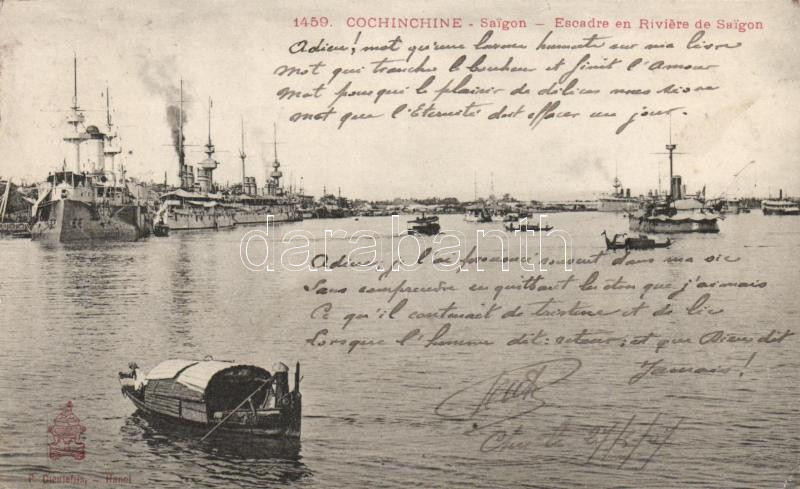 1459. COCHINCHINE - Saïgon – Escadre en Rivière de Saïgon
Adieu! mot qu'une larme humecte sur ma lèvre
Mot qui tranche le bonheur et finit l'Amour
Mot par qui le plaisir de délices nous sèvre
Mot que l'Eternité doit effacer un jour.
darabanth
Adieu, je l'ai prononcé souvent dans ma vie
Sans comprendre en quittant les êtres que j'aimais
Ce qu'il contenait de tristesse et de lie
Lorsque l'homme dit: retour; et que Dieu dit
Jamais!
P. Dieulefils, - Hanoi